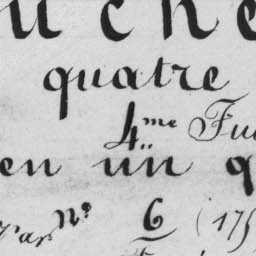 uche
quatre
4.me Fu
en un q
Par N° 6 (175